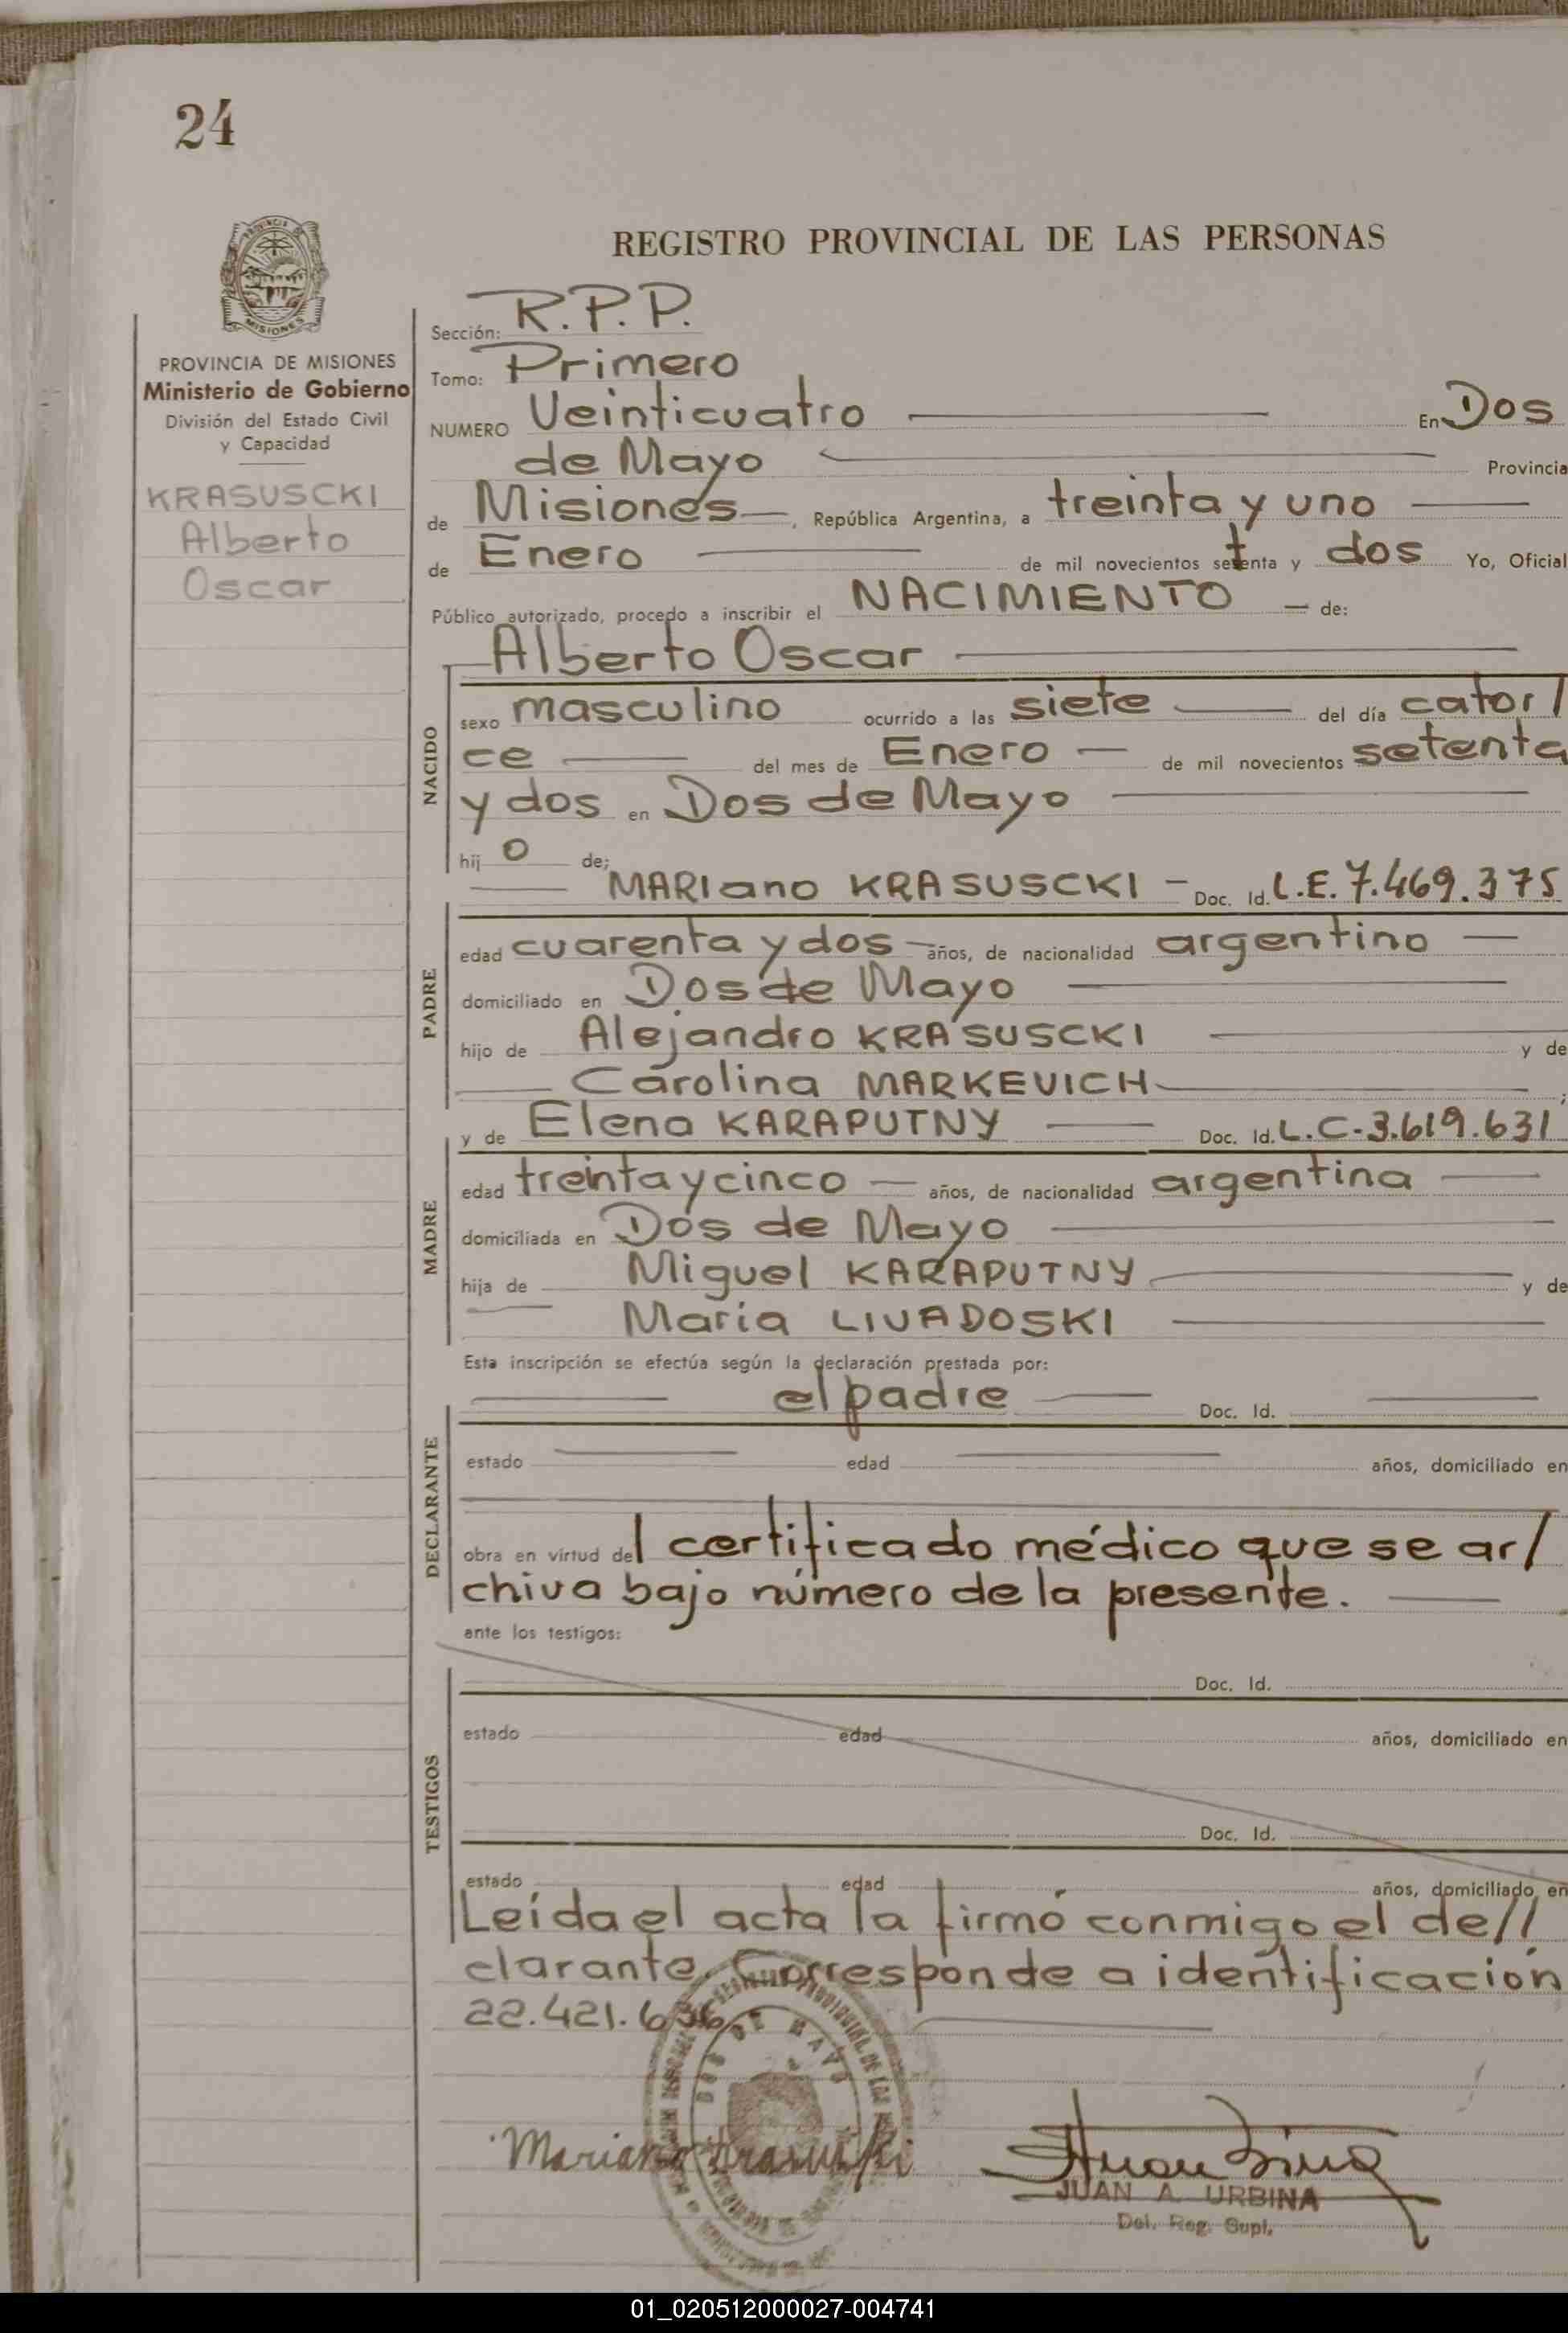 24
REGISTRO PROVINCIAL DE LAS PERSONAS
MISIONES
PROVINCIA DE MISIONES
Ministerio de Gobierno
División del Estado Civil
y Capacidad
KRASUSCKI
Alberto
Oscar
Sección: R.P.P.
Tomo: Primero
NUMERO Veinticuatro En Dos
de Mayo Provincia
de Misiones, República Argentina, a treinta y uno
de Enero de mil novecientos setenta y dos Yo, Oficial
Público autorizado, procedo a inscribir el NACIMIENTO de:
Alberto Oscar
NACIDO
sexo masculino ocurrido a las siete del día cator/
ce del mes de Enero de mil novecientos setenta
y dos en Dos de Mayo
hij o de;
MARIano KRASUSCKI Doc. Id. L.E. 7.469.375
PADRE
edad cuarenta y dos años, de nacionalidad argentino
domiciliado en Dos de Mayo
hijo de Alejandro KRASUSCKI y de
Carolina MARKEVICH ;
y de Elena KARAPUTNY Doc. Id. L.C-3.619.631
MADRE
edad treinta y cinco años, de nacionalidad argentina
domiciliada en Dos de Mayo
hija de Miguel KARAPUTNY y de
María LIVADOSKI
Esta inscripción se efectúa según la declaración prestada por:
el padre Doc. Id.
DECLARANTE
estado edad años, domiciliado en
obra en virtud del certificado médico que se ar/
chiva bajo número de la presente.
ante los testigos:
Doc. Id.
TESTIGOS
estado edad años, domiciliado en
Doc. Id.
estado edad años, domiciliado en
Leída el acta la firmó conmigo el de//
clarante. Corresponde a identificación
22.421.636
DOS DE MAYO
Mariano Krasuski
JUAN A. URBINA
Del. Reg. Supl.
01_020512000027-004741